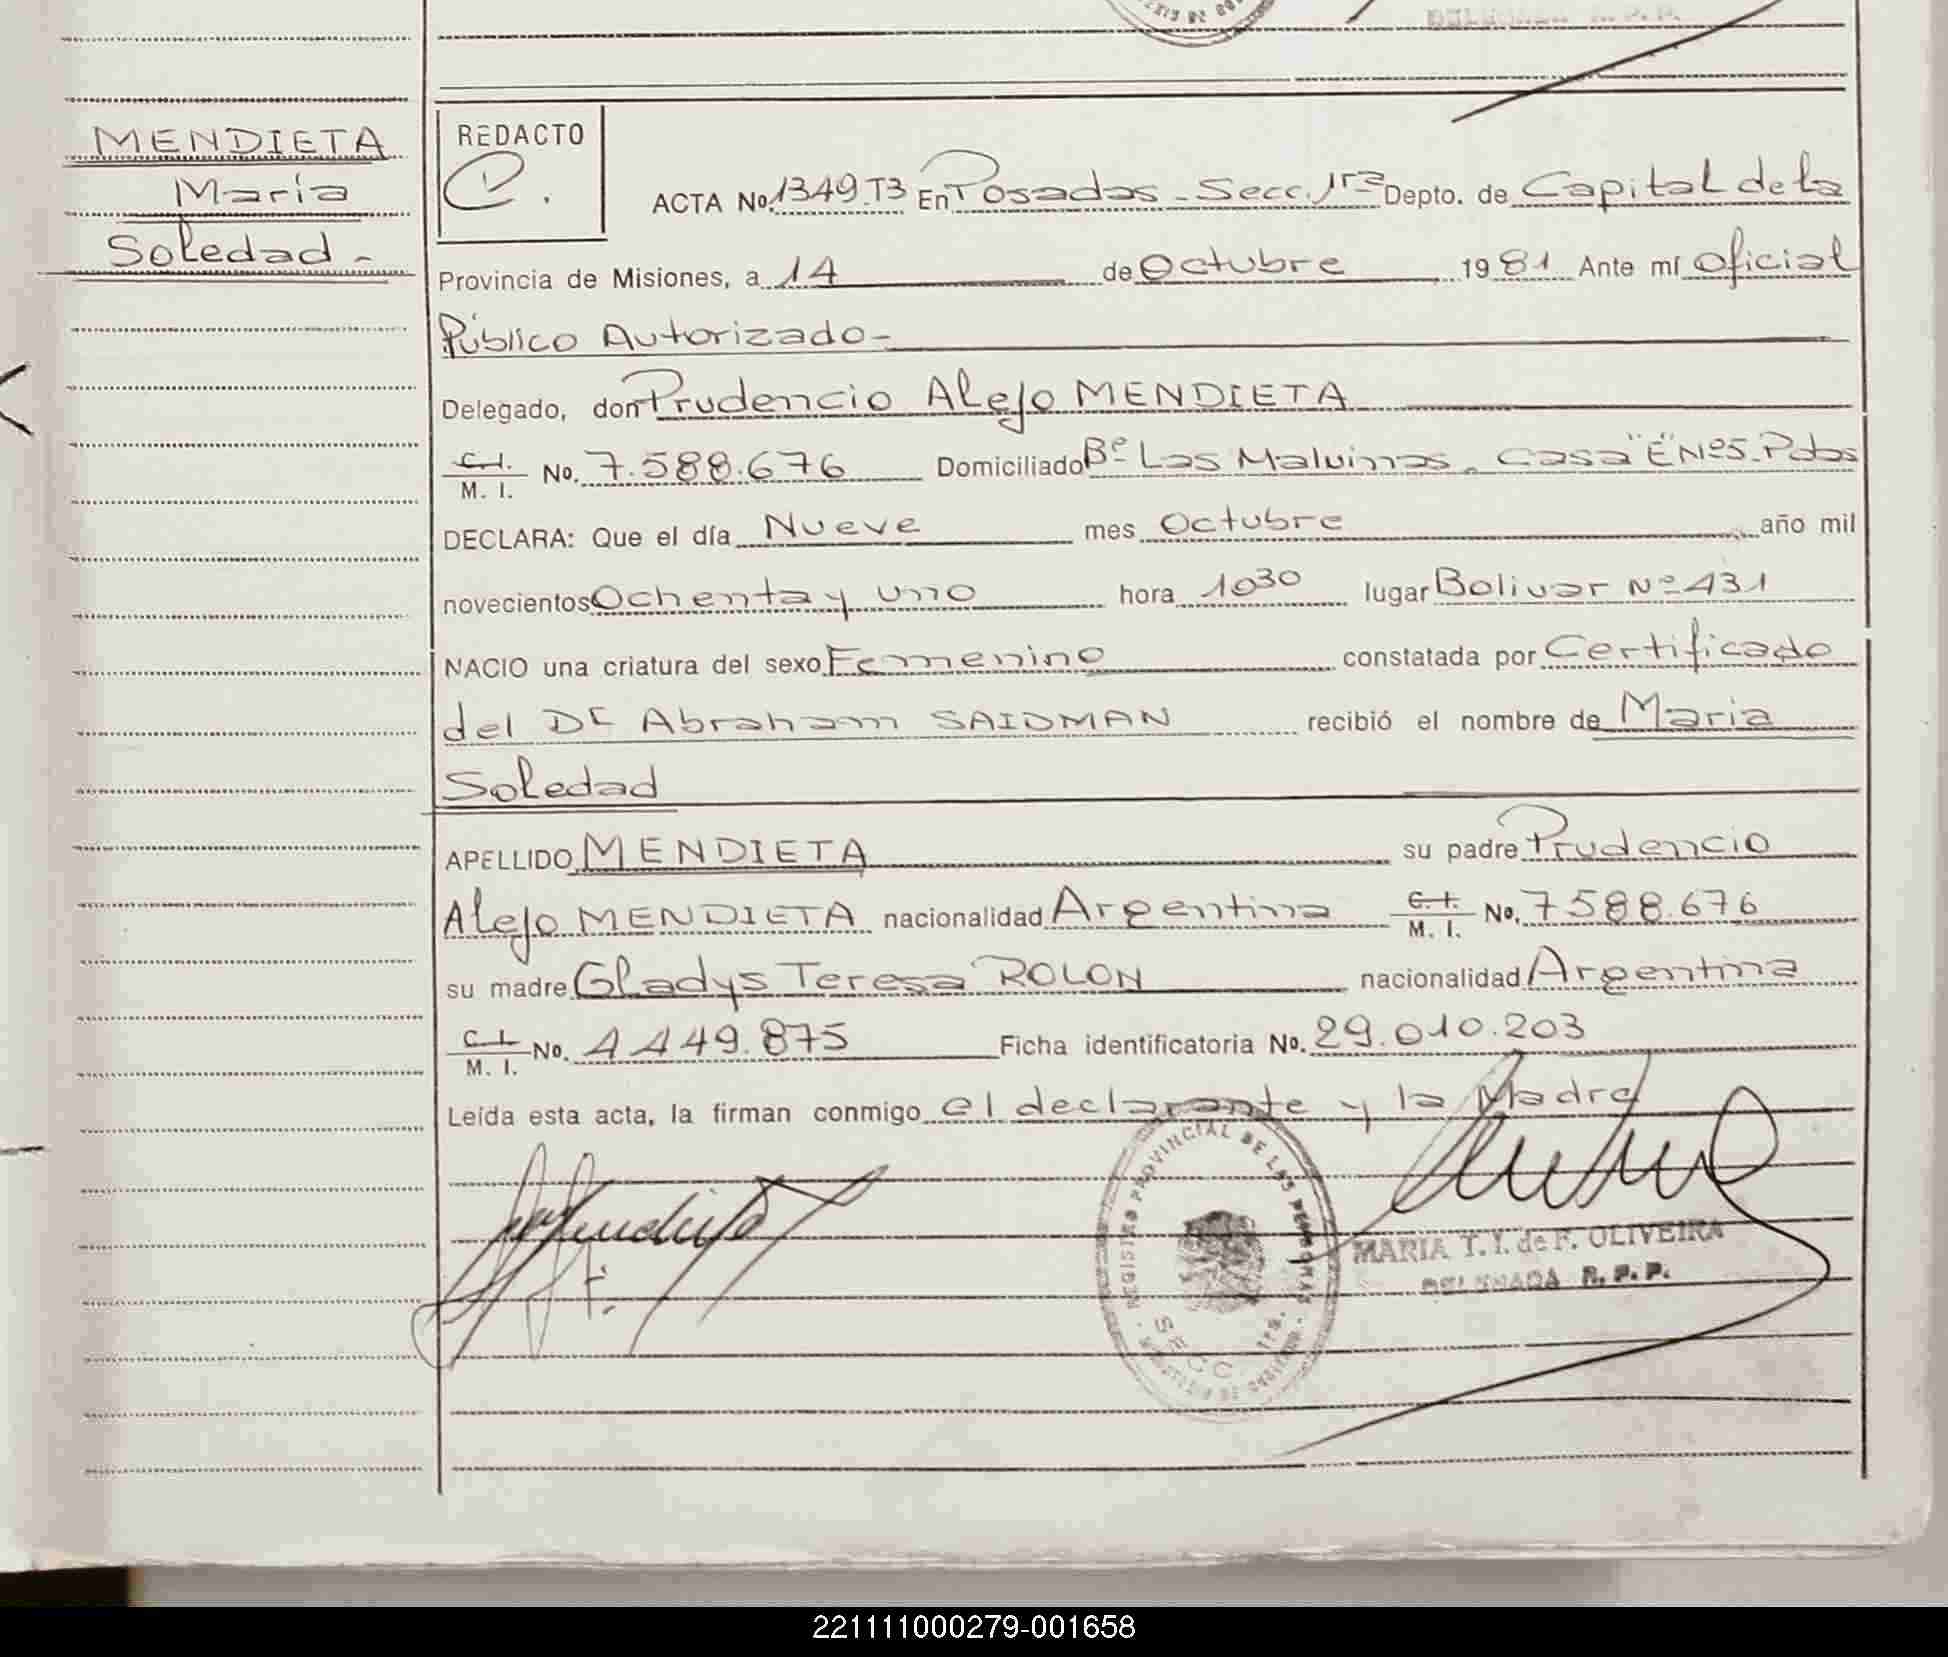 MENDIETA
María
Soledad -
REDACTO
C.
ACTA No. 1349 T3 En Posadas - Secc. 1ra Depto. de Capital de la
Provincia de Misiones, a 14 de Octubre 1981 Ante mí Oficial
Público Autorizado -
Delegado, don Prudencio Alejo MENDIETA
C. I. / M. I. No. 7.588.676 Domiciliado Bº Las Malvinas. Casa "E" Nº5. Pdas
DECLARA: Que el día Nueve mes Octubre año mil
novecientos Ochenta y uno hora 10 30 lugar Bolivar Nº 431
NACIO una criatura del sexo Femenino constatada por Certificado
del Dr Abraham SAIDMAN recibió el nombre de Maria
Soledad
APELLIDO MENDIETA su padre Prudencio
Alejo MENDIETA nacionalidad Argentina C. I. / M. I. No. 7588.676
su madre Gladys Teresa ROLON nacionalidad Argentina
C. I. / M. I. No. 4449.875 Ficha identificatoria No. 29.010.203
Leída esta acta, la firman conmigo el declarante y la Madre
REGISTRO PROVINCIAL DE LAS PERSONAS
SECC 1ra.
MARIA T. I. de F. OLIVEIRA
DELEGADA R. P. P.
221111000279-001658